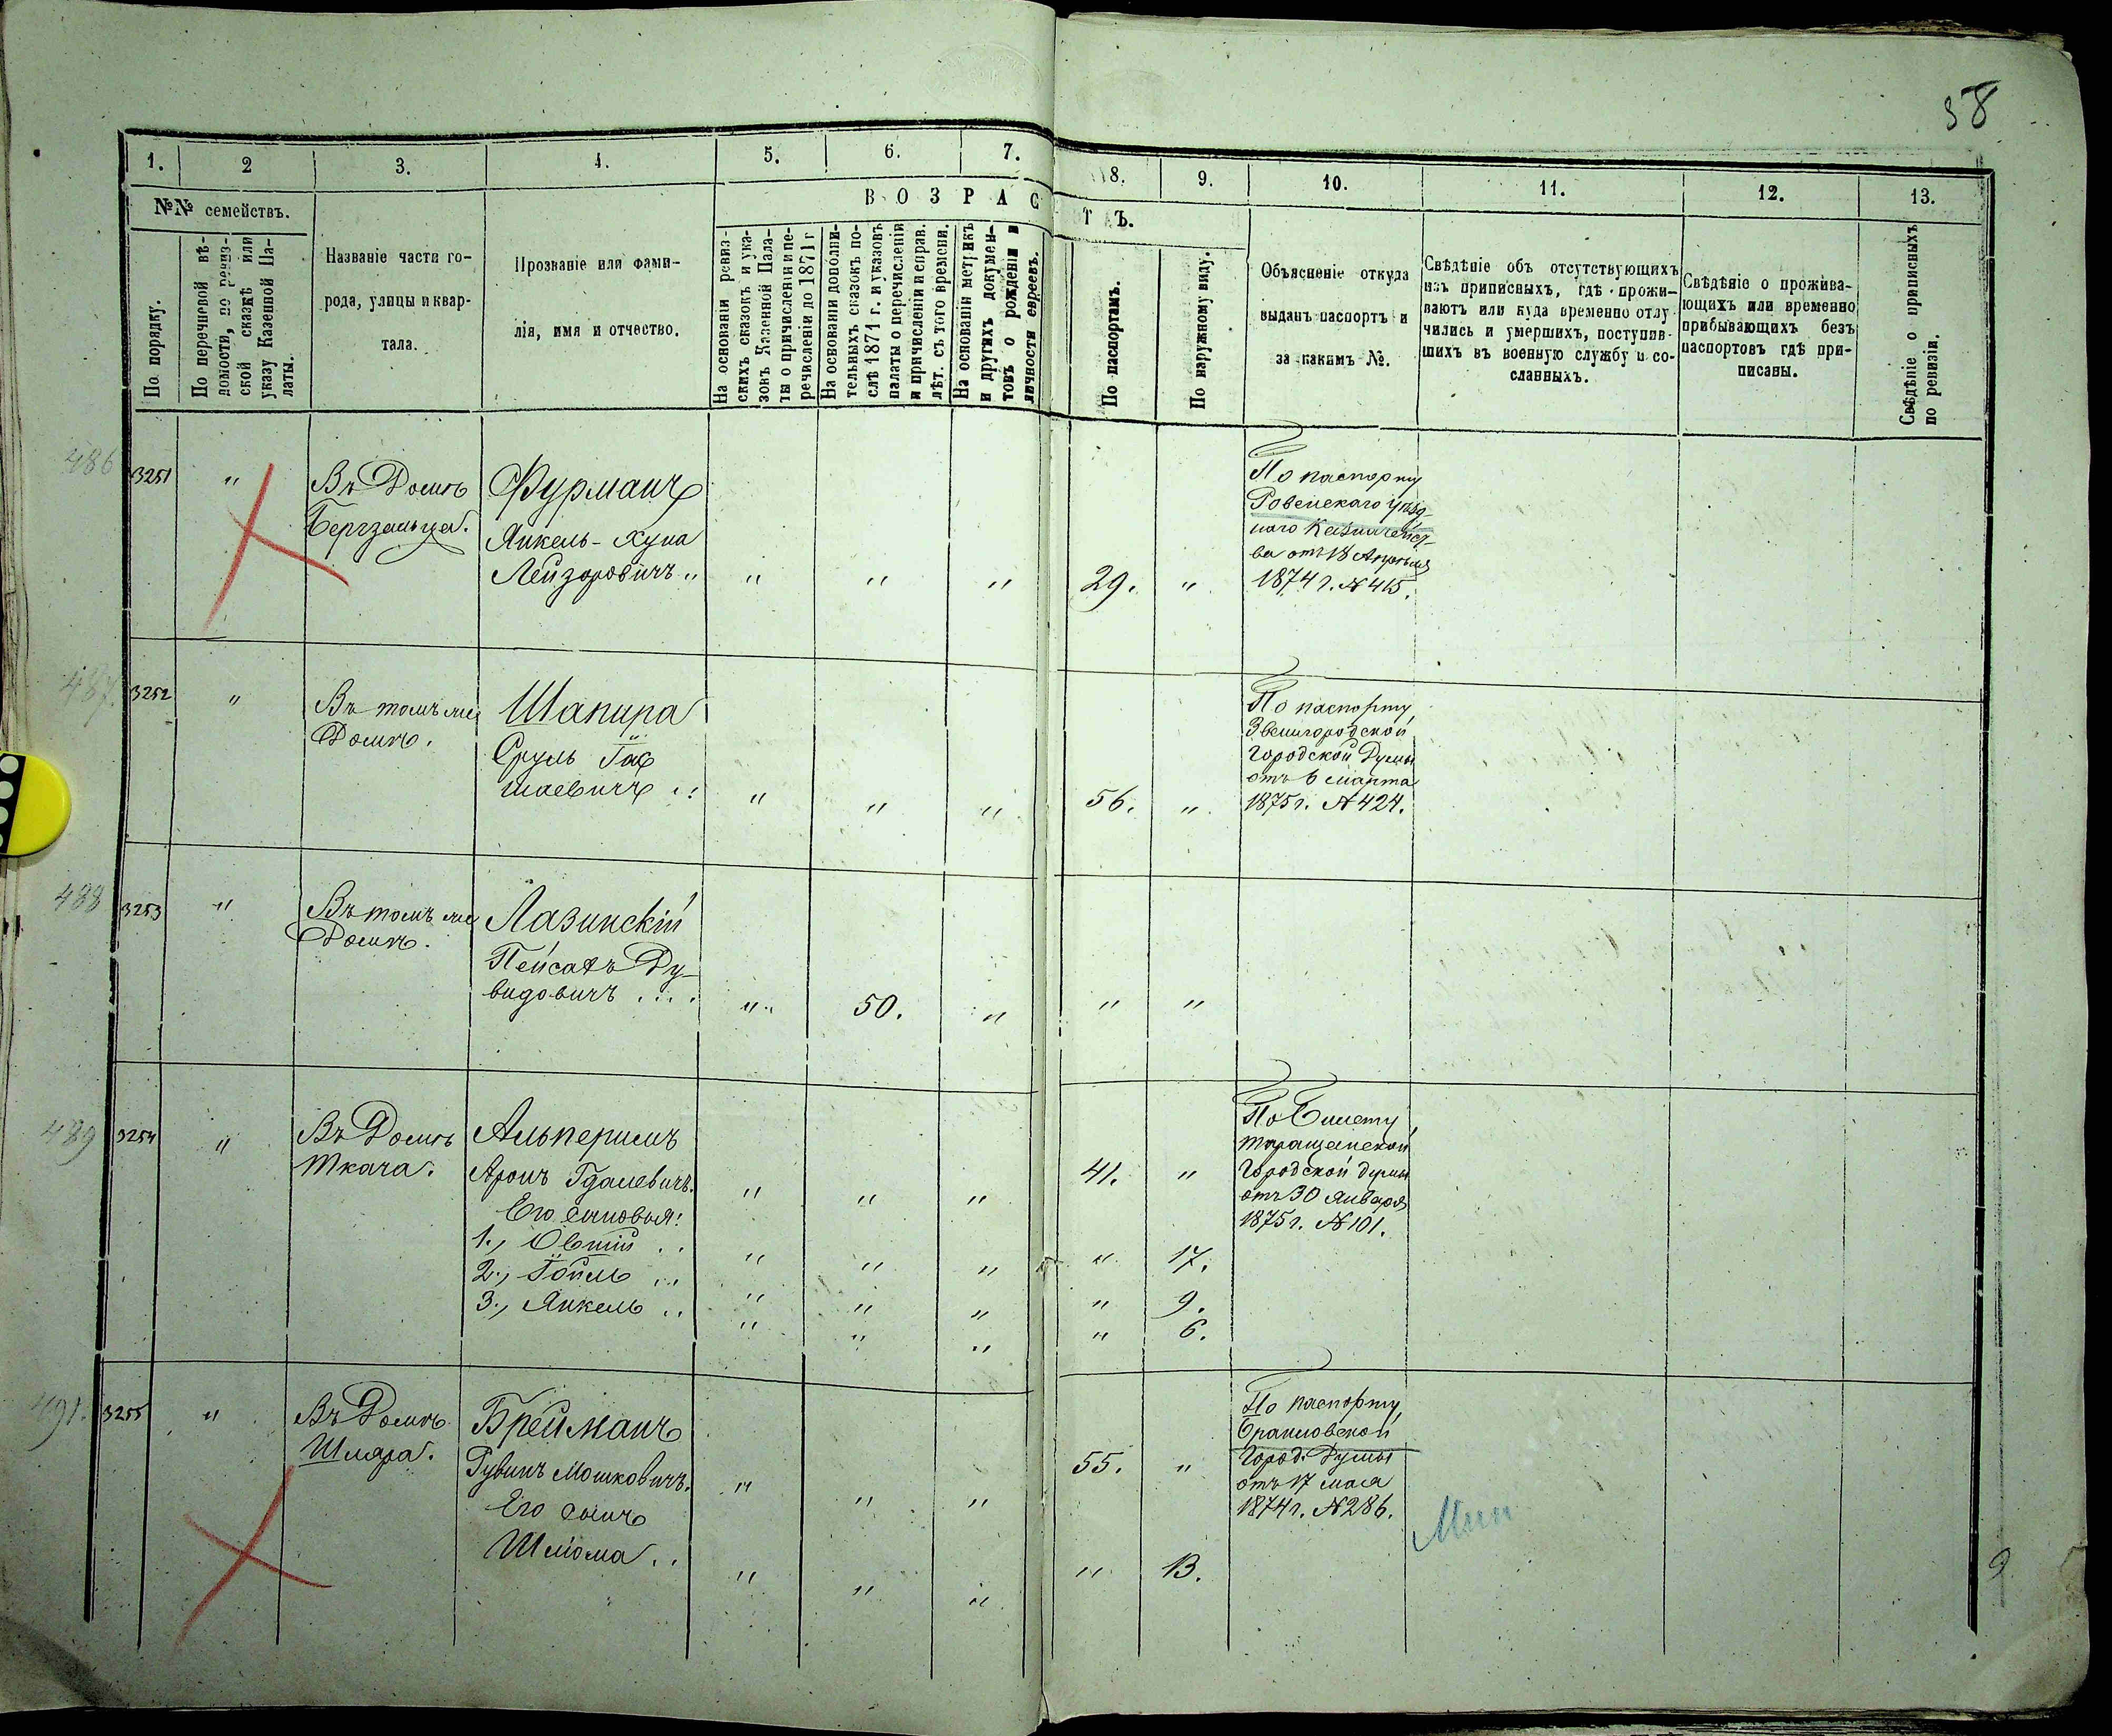 58
1.
2
3.
4.
5.
6.
7.
8.
9.
10.
11.
12.
13.
№№ семействъ.
ВОЗРАС
ТЪ.
По порядку.
По перечневой вѣ-
домости, по ревиз-
ской сказкѣ или
указу Казенной Па-
латы.
Названіе части го-
рода, улицы и квар-
тала.
Прозваніе или фами-
лія, имя и отчество.
На основаніи ревиз-
скихъ сказокъ и ука-
зовъ Казенной Пала-
ты о причисленіи и пе-
речисленіи до 1871 г
На основаніи дополни-
тельныхъ сказокъ по-
слѣ 1871 г. и указовъ
палаты о перечисленіи
и причисленіи и справ.
лѣт. съ того времени.
На основаніи метрикъ
и другихъ докумен-
товъ о рожденіи и
личности евреевъ.
По паспортамъ.
По наружному виду.
Объясненіе откуда
выданъ паспортъ и
за какимъ №.
Свѣдѣніе объ отсутствующихъ
изъ приписныхъ, гдѣ прожи-
ваютъ или куда временно отлу-
чились и умершихъ, поступив-
шихъ въ военную службу и со-
сланныхъ.
Свѣдѣніе о прожива-
ющихъ или временно
прибывающихъ безъ
паспортовъ гдѣ при-
писаны.
Свѣдѣніе о приписныхъ
по ревизіи.
486
3251 "
Въ Домѣ
Бергзальца.
Фурманъ
Янкель-Хуна
Лейзоровичъ " " " " 29. "
По паспорту
Ровенскаго уѣзд-
наго Казначейст-
ва отъ 18 Апрѣля
1874 г. № 415.
487.
3252 "
Въ томъ же
Домѣ.
Шапира
Сруль Іо
шаевичъ .. " " " 56. "
По паспорту
Звенигородской
Городской Думы
отъ 6 марта
1875 г. № 424.
488
3253 "
Въ томъ же
Домѣ.
Лазинскій
Пейсахъ Ду-
видовичъ .... " 50. " " "
489
3254 "
Въ Домѣ
Ткача.
Альперинъ
Аронъ Гдалевичъ. " " " 41. "
Его сыновья:
1., Овшій .. " " " " 17.
2., Іойль .. " " " " 9.
3., Янкель .. " " " " 6.
По Билету
Таращанской
Городской думы
отъ 30 Января
1875 г. № 101.
491.
3255 "
Въ Домѣ
Шляра.
Брейманъ
Рувинъ Мошковичъ. " " " 55. "
Его сынъ
Шлiома .. " " " " 13.
По паспорту
Брацловской
Город. Думы
отъ 17 мая
1874 г. № 286.
9